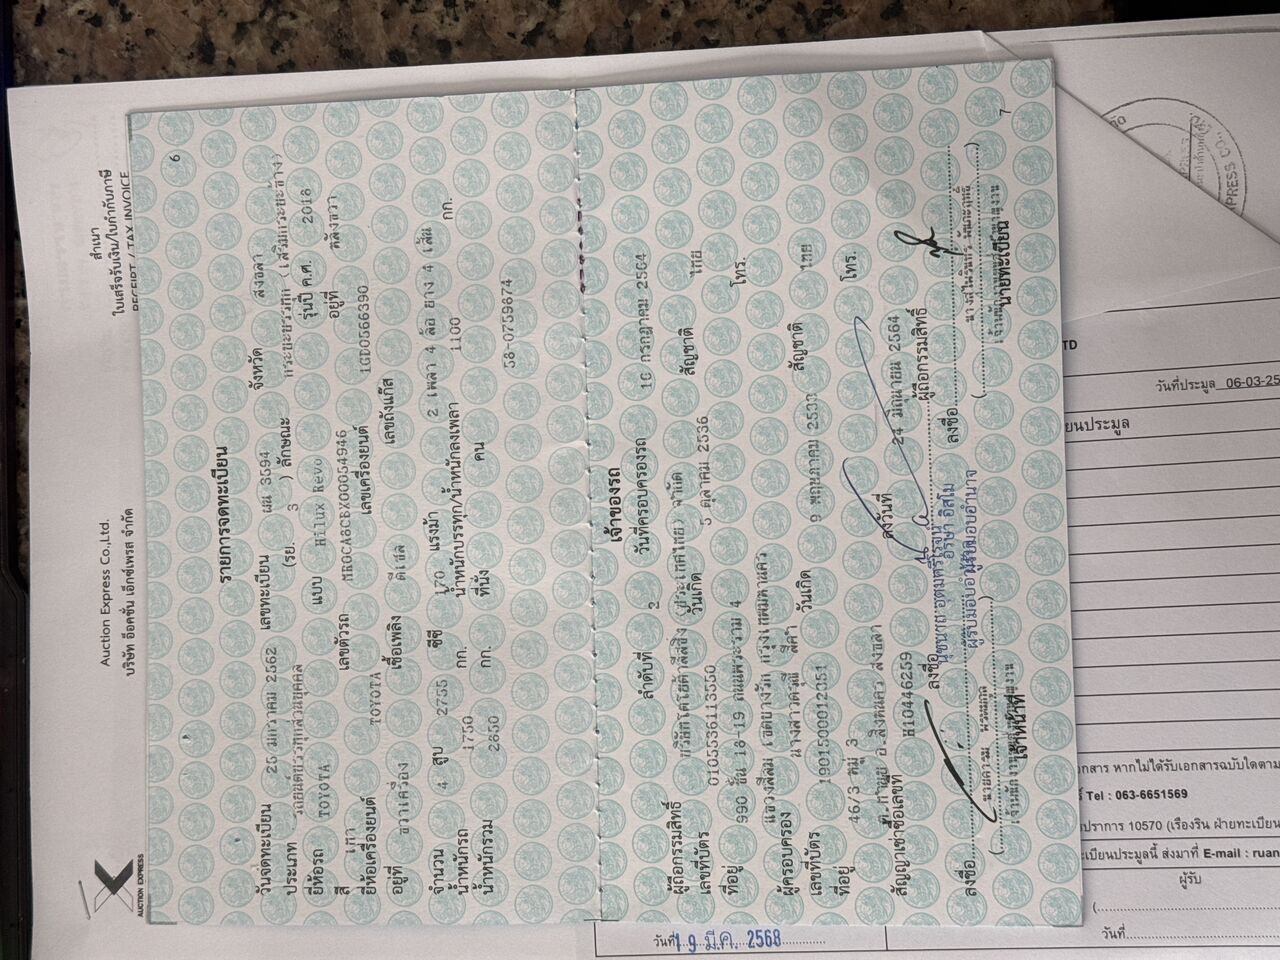 6
รายการจดทะเบียน
วันจดทะเบียน 25 มกราคม 2562 เลขทะเบียน ผน 3594 จังหวัด สงขลา
ประเภท รถยนต์บรรทุกส่วนบุคคล (รย. 3 ) ลักษณะ กระบะบรรทุก (เสริมกระบะข้าง)
ยี่ห้อรถ TOYOTA แบบ Hilux Revo รุ่นปี ค.ศ. 2018
สี เทา เลขตัวรถ อยู่ที่
ยี่ห้อเครื่องยนต์ TOYOTA เลขเครื่องยนต์ 1GD0566390
อยู่ที่ ขวาเครื่อง เชื้อเพลิง ดีเซล เลขถังแก๊ส
จำนวน 4 สูบ 2755 ซีซี 170 แรงม้า 2 เพลา 4 ล้อ ยาง 4 เส้น
น้ำหนักรถ 1750 กก. น้ำหนักบรรทุก/น้ำหนักลงเพลา 1100 กก.
น้ำหนักรวม 2850 กก. ที่นั่ง คน
58-0759674
เจ้าของรถ
ลำดับที่ 2 วันที่ครอบครองรถ กรกฎาคม 2564
ผู้ถือกรรมสิทธิ์ จำกัด
เลขที่บัตร 0105536113550 วันเกิด 5 ตุลาคม 2536 สัญชาติ ไทย
ที่อยู่ 990 ชั้น 18-19 ถนนพระราม 4 โทร.
แขวงสีลม เขตบางรัก กรุงเทพมหานคร
ผู้ครอบครอง
เลขที่บัตร 1901500012051 วันเกิด 9 พฤษภาคม สัญชาติ ไทย
ที่อยู่ 46/3 หมู่ 3 โทร.
สงขลา
สัญญาเช่าซื้อเลขที่ ลงวันที่ 24 มิถุนายน 2564
ลงชื่อ ผู้ถือกรรมสิทธิ์
ผู้รับมอบอำนาจ
ลงชื่อ ลงชื่อ
เจ้าหน้าที่ นายทะเบียน
7
AUCTION EXPRESS
Auction Express Co.,Ltd.
บริษัท อ๊อคชั่น เอ็กซ์เพรส จำกัด
สำเนา
ใบเสร็จรับเงิน/ใบกำกับภาษี
RECEIPT / TAX INVOICE
LTD
วันที่ประมูล 06-03-25
ยนประมูล
อกสาร หากไม่ได้รับเอกสารฉบับใดตาม
Tel : 063-6651569
ปราการ 10570 (เรืองริน ฝ่ายทะเบียน
ะเบียนประมูลนี้ ส่งมาที่ E-mail : ruan
ผู้รับ
วันที่ 19 มี.ค. 2568
วันที่
PRESS CO.,